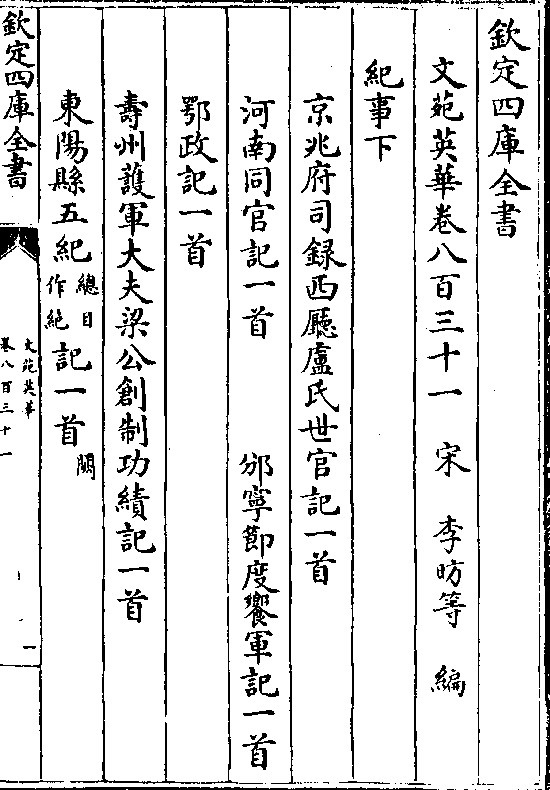 欽定四庫全書
文苑英華卷八百三十一 宋 李昉等 編
紀事下
京兆府司録西廳盧氏世官記一首
河南同官記一首 邠寧節度饗軍記一首
鄂政記一首
壽州護軍大夫梁公創制功績記一首
東陽縣五紀總目作絶記一首闕
欽定四庫全書
文苑英華
卷八百三十一
一